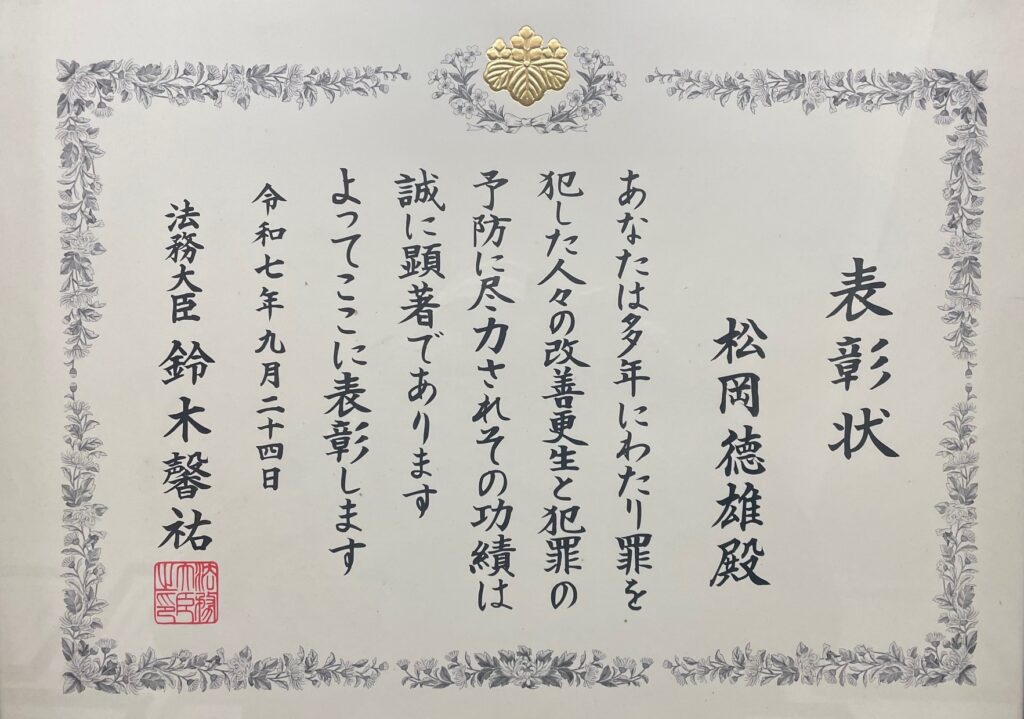 表彰状
松岡德雄殿
あなたは多年にわたり罪を
犯した人々の改善更生と犯罪の
予防に尽力されその功績は
誠に顕著であります
よってここに表彰します
令和七年九月二十四日
法務大臣 鈴木馨祐
法務大臣之印